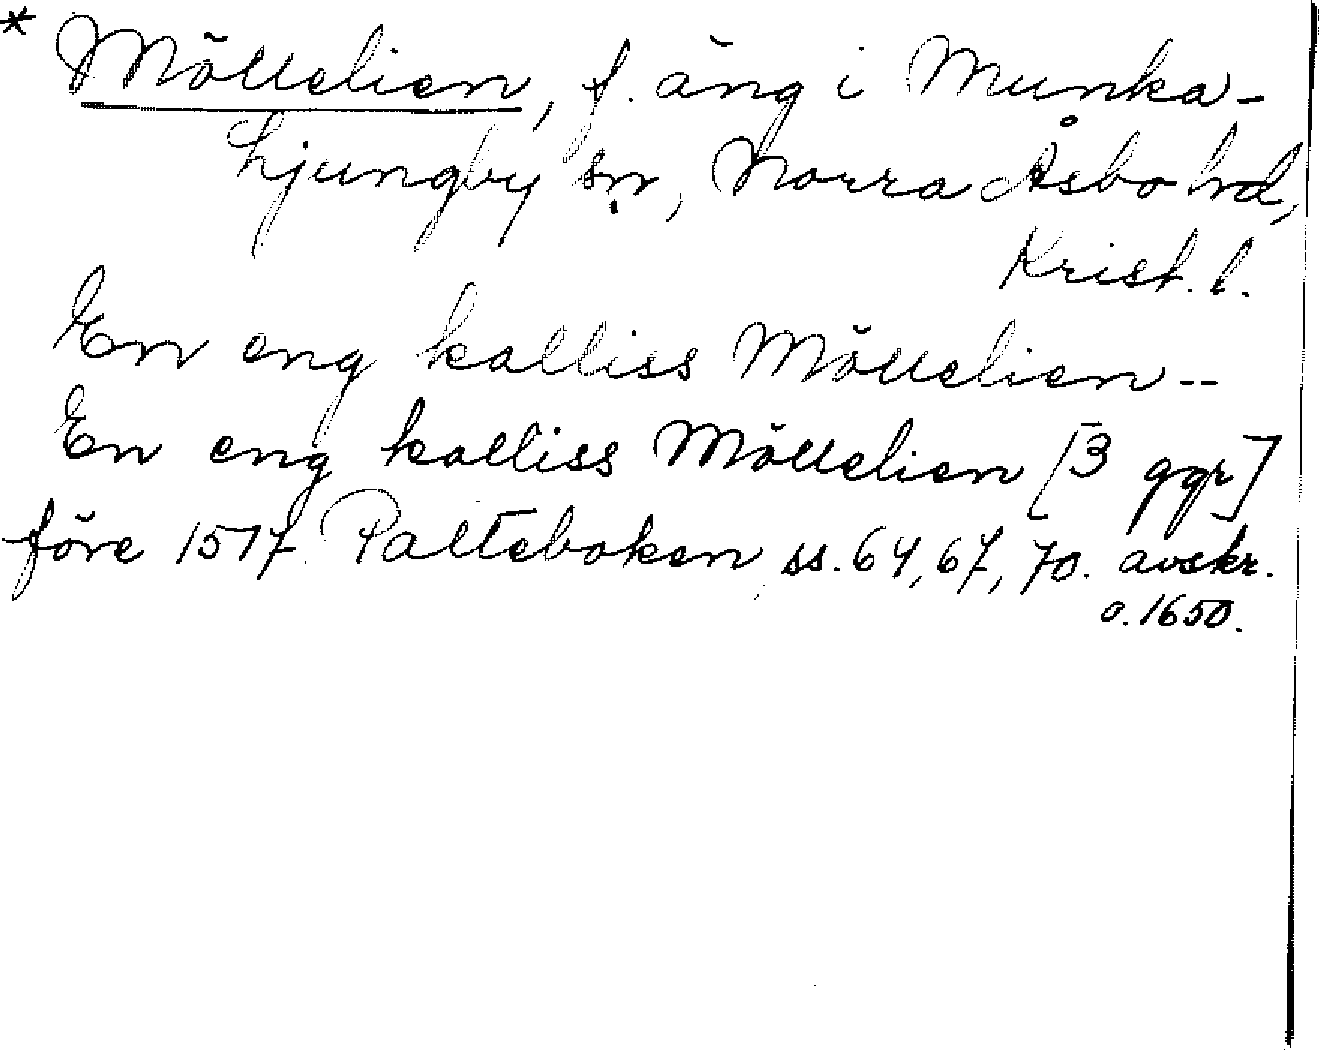 * Möllelien, f. äng i Munka-
Ljungby sn, Norra Åsbo hd,
Krist. l.
En eng kalliss Möllelien--
En eng kalliss Möllelien [3 ggr]
före 1517. Palteboken, ss. 64, 67, 70. avskr.
o. 1650.